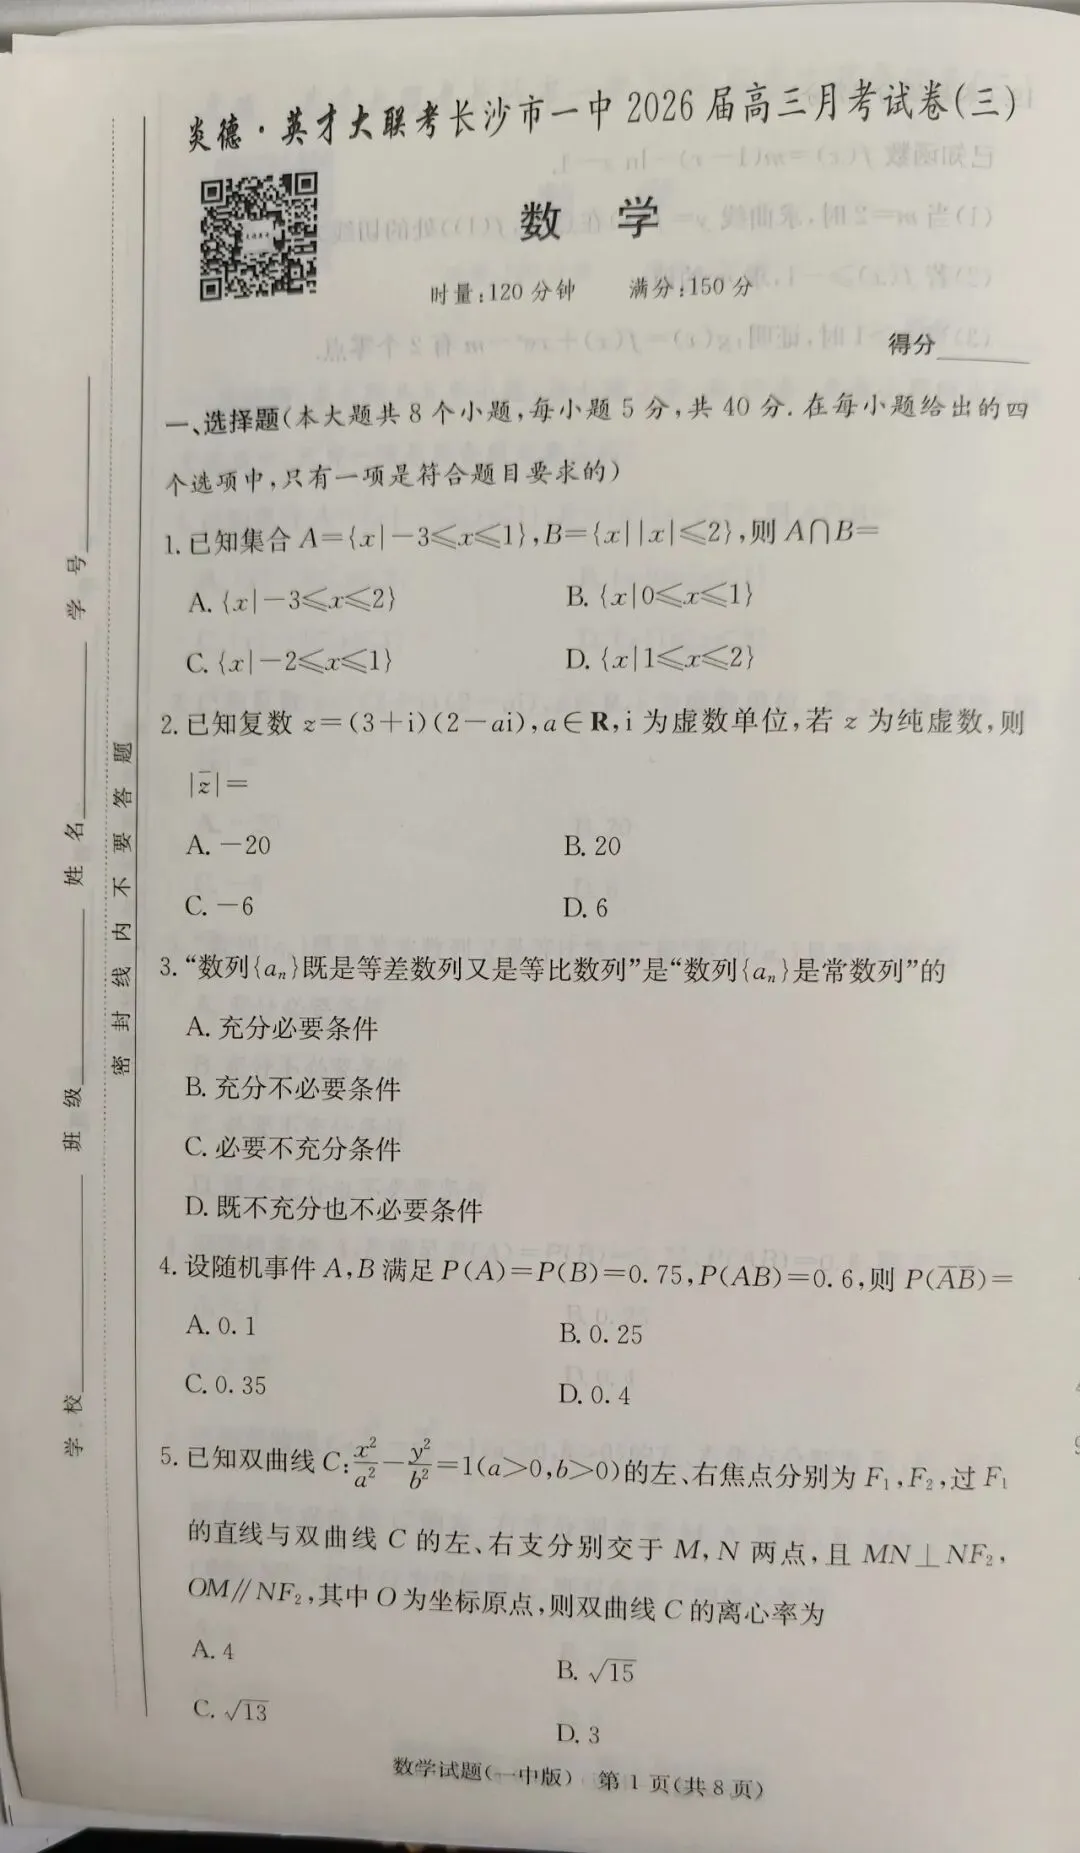 炎德·英才大联考长沙市一中2026届高三月考试卷(三)
数 学
时量:120分钟 满分:150分
得分
一、选择题(本大题共8个小题,每小题5分,共40分.在每小题给出的四
个选项中,只有一项是符合题目要求的)
1.已知集合A={x|-3≤x≤1},B={x||x|≤2},则A∩B=
A.{x|-3≤x≤2} B.{x|0≤x≤1}
C.{x|-2≤x≤1} D.{x|1≤x≤2}
2.已知复数z=(3+i)(2-ai),a∈R,i为虚数单位,若z为纯虚数,则
|z̅|=
A.-20 B.20
C.-6 D.6
3.“数列{aₙ}既是等差数列又是等比数列”是“数列{aₙ}是常数列”的
A.充分必要条件
B.充分不必要条件
C.必要不充分条件
D.既不充分也不必要条件
4.设随机事件A,B满足P(A)=P(B)=0.75,P(AB)=0.6,则P(A̅B̅)=
A.0.1 B.0.25
C.0.35 D.0.4
5.已知双曲线C:x²/a²-y²/b²=1(a>0,b>0)的左、右焦点分别为F₁,F₂,过F₁
的直线与双曲线C的左、右支分别交于M,N两点,且MN⊥NF₂,
OM∥NF₂,其中O为坐标原点,则双曲线C的离心率为
A.4 B.√15
C.√13 D.3
数学试题(一中版) 第1页(共8页)
学校 班级 姓名 学号
密封线内不要答题